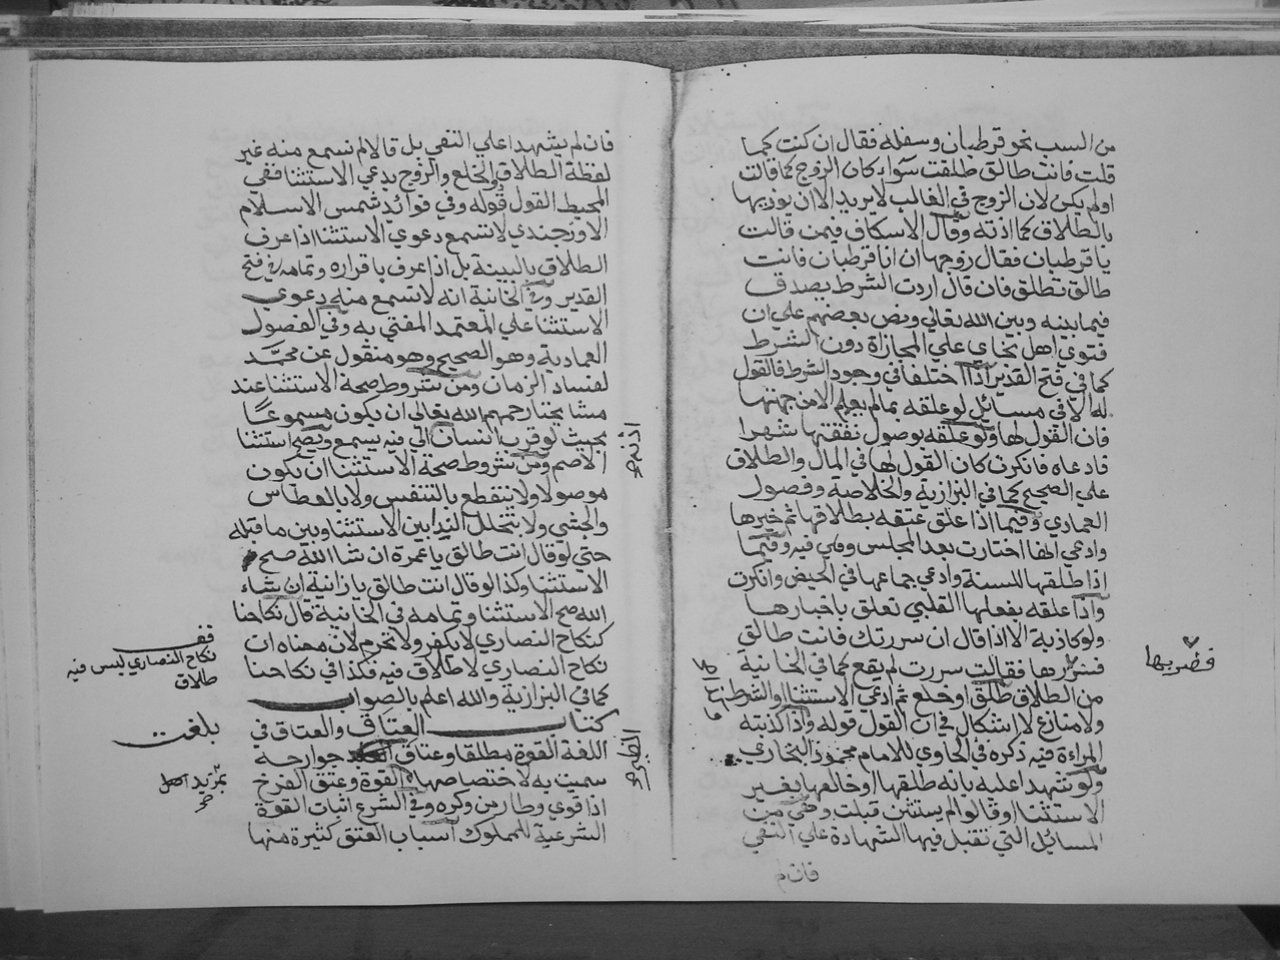 من السب نحو قرطبان وسفله فقال ان كنت كما
قلت فانت طالق طلقت سوآء كان الزوج كما قالت
اولم يكن لان الزوج في الغالب لا يريد الا ان يوذيها
بالطلاق كما اذته وقال الاسكاف فيمن قالت
يا قرطبان فقال زوجها ان انا قرطبان فانت
طالق تطلق فان قال اردت الشرط يصدق
فيما بينه وبين الله تعالي ونص بعضهم علي ان
فتوي اهل بخاري علي المجازاة دون الشرط
كما في فتح القدير اذا اختلفا في وجود الشرط فالقول
له الا في مسائل لو علقه بما لم يعلم الا من جهتها
فان القول لها ولو علقه بوصول نفقتها شهرا
فادعاه فانكرت كان القول لها في المال والطلاق
علي الصحيح كما في البزازية والخلاصة وفصول
العمادي وفيما اذا علق عتقه بطلاقها ثم خيرها
وادعي انها اختارت بعد المجلس وهي فيه وفيما
اذا طلقها للسنة وادعي جماعها في الحيض وانكرت
واذا علقه بفعلها القلبي تعلق باخبارها
ولو كاذبة الا اذا قال ان سررتك فانت طالق
فسررها فقالت سررت لم يقع كما في الخانية
فضربها
من الطلاق طلق او خلع ثم ادعي الاستثنا او الشرط
ولا منازع لا اشكال في ان القول قوله واذا كذبته
المراءة فيه ذكره في الحاوي للامام محمود البخاري
ولو شهدا عليه بانه طلقها او خالعها بغير
الاستثنا او قالوا لم يستثن قبلت وهي من
المسائل التي تقبل فيها الشهادة علي النفي
فان لم
فان لم يشهدا علي النفي بل قالا لم نسمع منه غير
لفظة الطلاق والخلع والزوج يدعي الاستثنا ففي
المحيط القول قوله وفي فوائد شمس الاسلام
الاوزجندي لا تسمع دعوي الاستثنا اذا عرف
الطلاق بالبينة بل اذا عرف باقراره وتمامه في فتح
القدير وفي الخانية انه لا تسمع منه دعوي
الاستثنا علي المعتمد المفتي به وفي الفصول
العمادية وهو الصحيح وهو منقول عن محمد
لفساد الزمان ومن شروط صحة الاستثنا عند
مشايخنا رحمهم الله تعالي ان يكون مسموعا
بحيث لو قرب انسان الي فيه يسمع ويصح استثنا
الاصم ومن شروط صحة الاستثنا ان يكون
موصولا ولا ينقطع بالتنفس ولا بالعطاس
والجشي ولا بتخلل الندا بين الاستثنا وبين ما قبله
حتي لو قال انت طالق يا عمرة ان شا الله صح
الاستثنا وكذا لو قال انت طالق يا زانية ان شاء
الله صح الاستثنا وتمامه في الخانية قال نكاحنا
كنكاح النصاري لا يكفر ولا تحرم لان معناه ان
نكاح النصاري لا طلاق فيه فكذا في نكاحنا
كما في البزازية والله اعلم بالصواب
قف
نكاح النصاري ليس فيه
طلاق
كتاب العتاق والعتاق في
بلغت
اللغة القوة مطلقا وعتاق جوارحه
سميت به لاختصاصها القوة وعتق الفرخ
اذا قوي وطار من وكره وفي الشرع اثبات القوة
الشرعية للمملوك اسباب العتق كثيرة منها